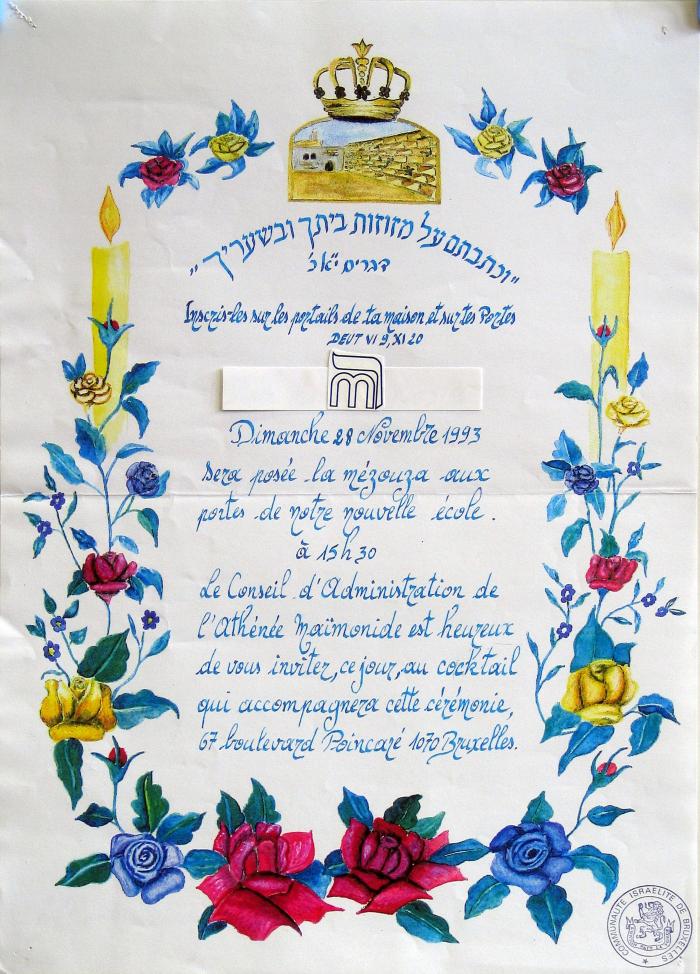 "וכתבתם על מזוזות ביתך ובשעריך"
דברים י"א כ'
Inscris-les sur les portails de ta maison et sur tes Portes
DEUT VI 9, XI 20
Dimanche 28 Novembre 1993
sera posée la mézouza aux
portes de notre nouvelle école.
à 15h30
Le Conseil d'Administration de
l'Athénée Maïmonide est heureux
de vous inviter, ce jour, au cocktail
qui accompagnera cette cérémonie,
67 boulevard Poincaré 1070 Bruxelles.
COMMUNAUTÉ ISRAELITE DE BRUXELLES